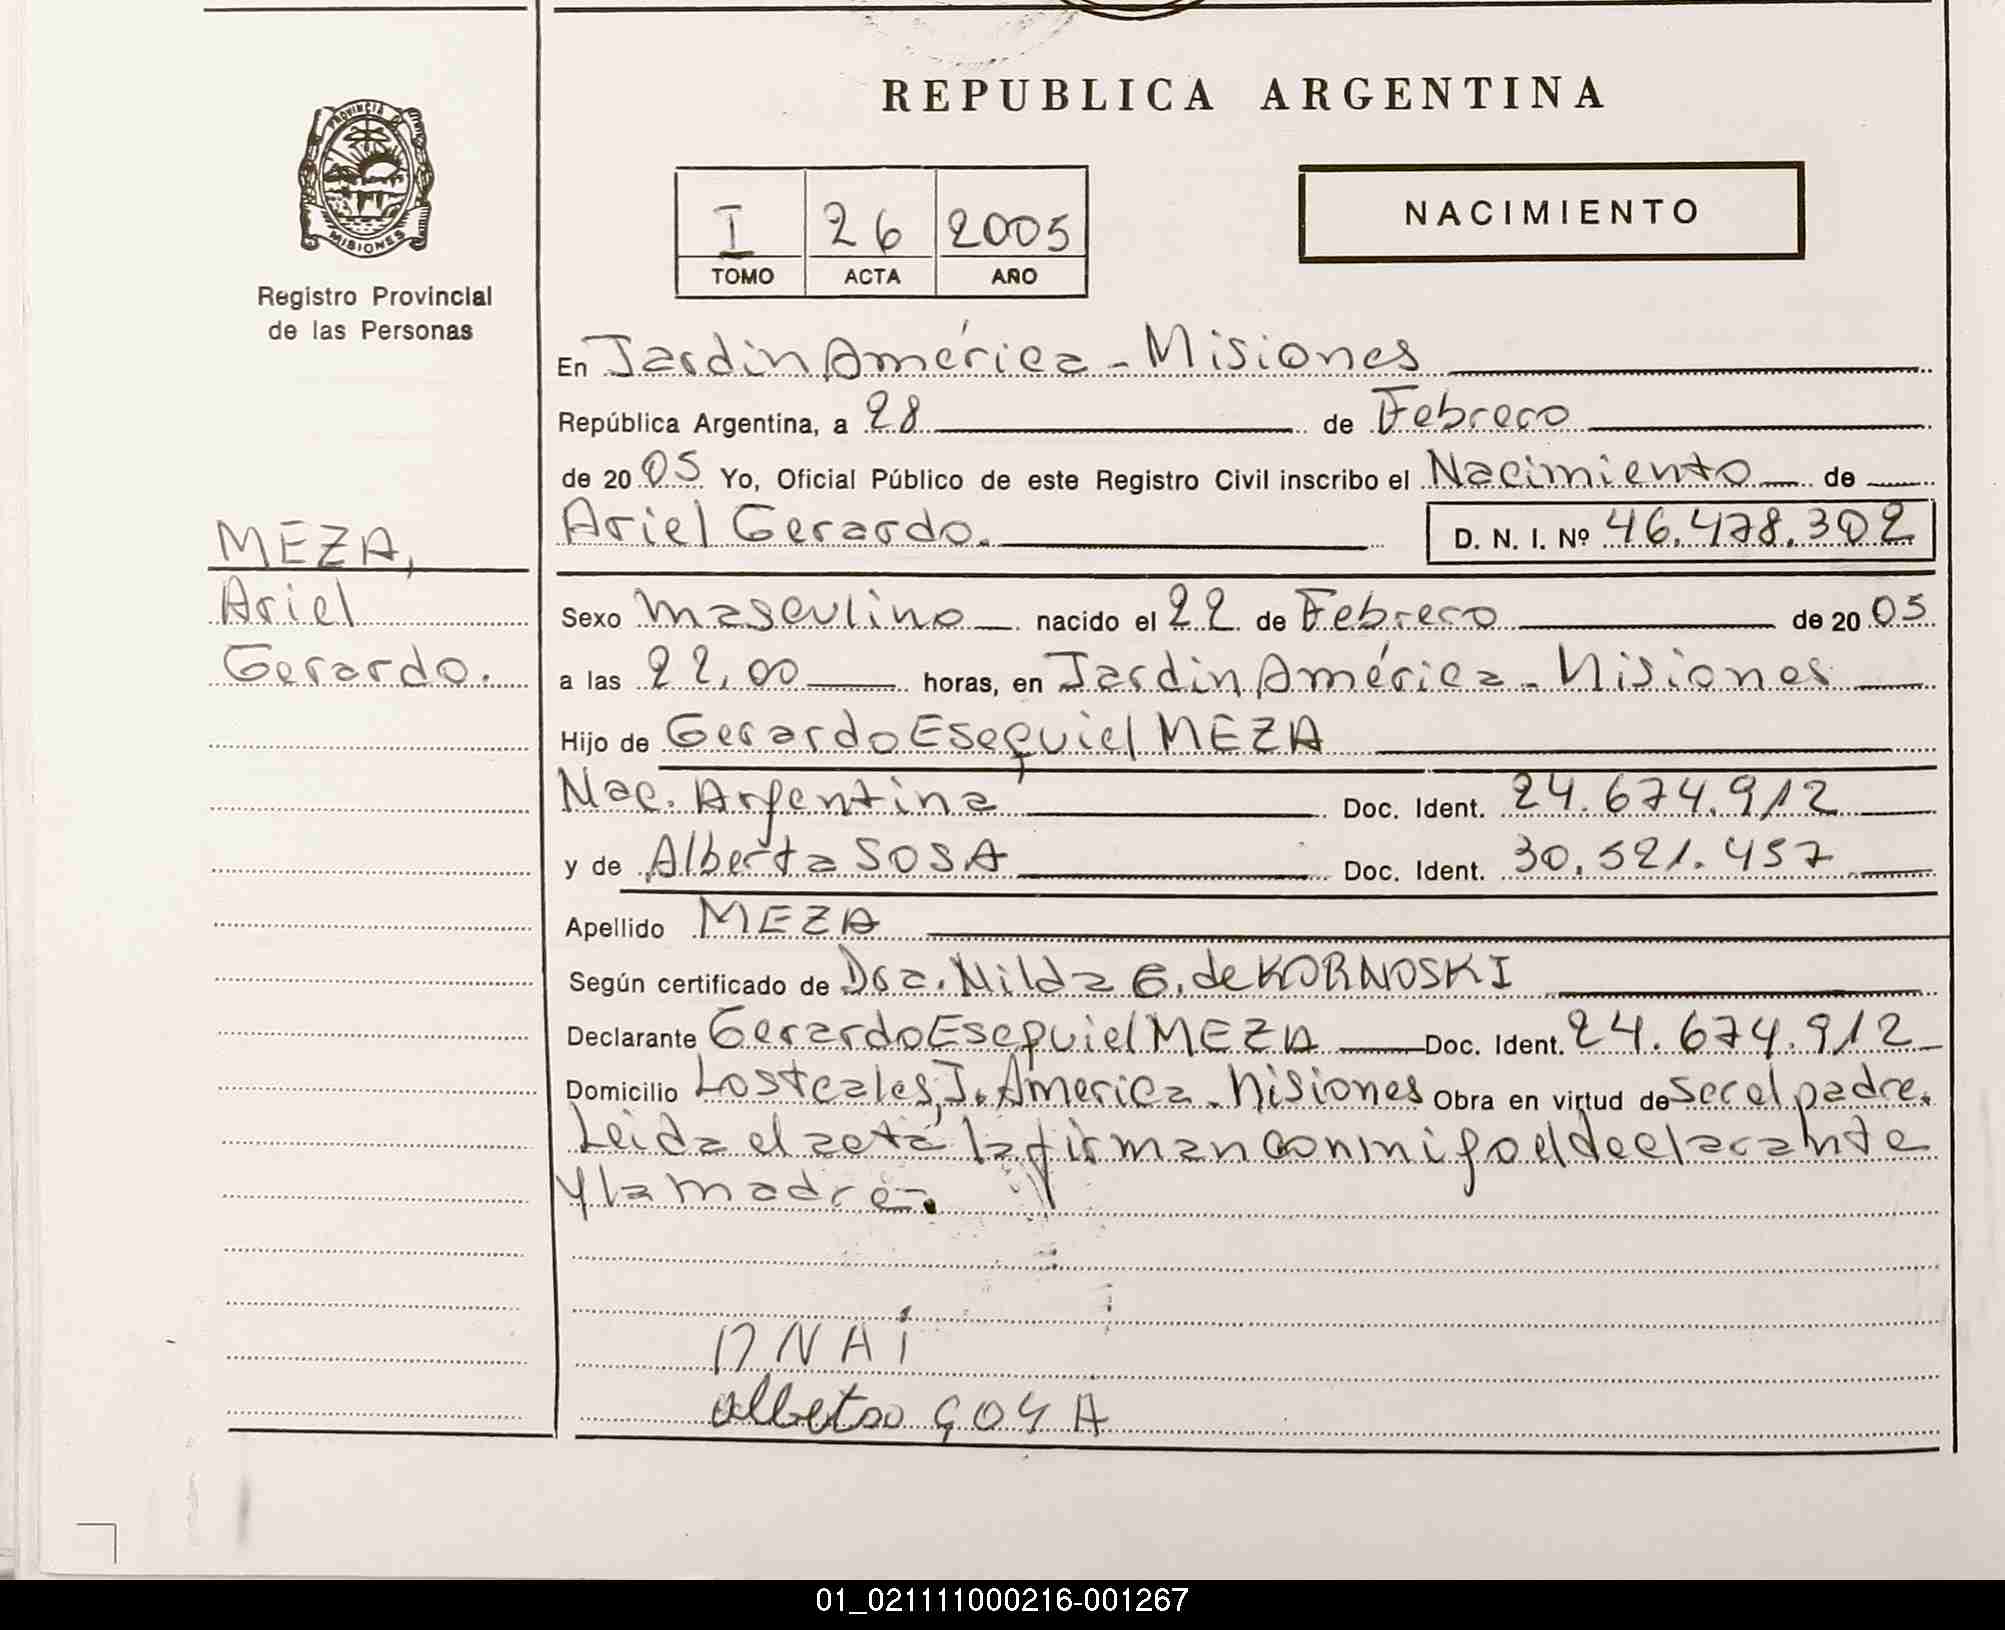 REPUBLICA ARGENTINA
PROVINCIA DE
MISIONES
Registro Provincial
de las Personas
I 26 2005
TOMO ACTA AÑO
NACIMIENTO
En Jardin América - Misiones
República Argentina, a 28 de Febrero
de 20 05 Yo, Oficial Público de este Registro Civil inscribo el Nacimiento de
Ariel Gerardo. D. N. I. Nº 46.478.302
MEZA,
Ariel
Gerardo.
Sexo masculino nacido el 22 de Febrero de 20 05
a las 22,00 horas, en Jardin América - Misiones
Hijo de Gerardo Esequiel MEZA
Nac. Argentina Doc. Ident. 24.674.912
y de Alberta SOSA Doc. Ident. 30.521.457
Apellido MEZA
Según certificado de Dra. Nilda G. de KORNOSKI
Declarante Gerardo Esequiel MEZA Doc. Ident. 24.674.912
Domicilio Los teales, J. America - Misiones Obra en virtud de ser el padre.
Leida el acta la firman conmigo el declarante
y la madre.
alberta SOSA
01_021111000216-001267